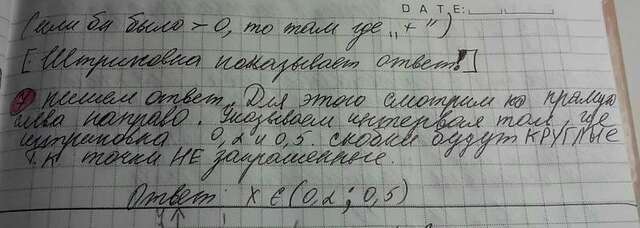 DATE:
(если бы было > 0, то там где „+")
[Штриховка показывает ответ!]
⑦ пишем ответ. Для этого смотрим на прямую
слева направо. Указываем интервал там, где
штриховка 0,2 и 0,5 скобки будут КРУГЛЫЕ
т.к точки НЕ закрашенные.
Ответ: x ∈ (0,2 ; 0,5)